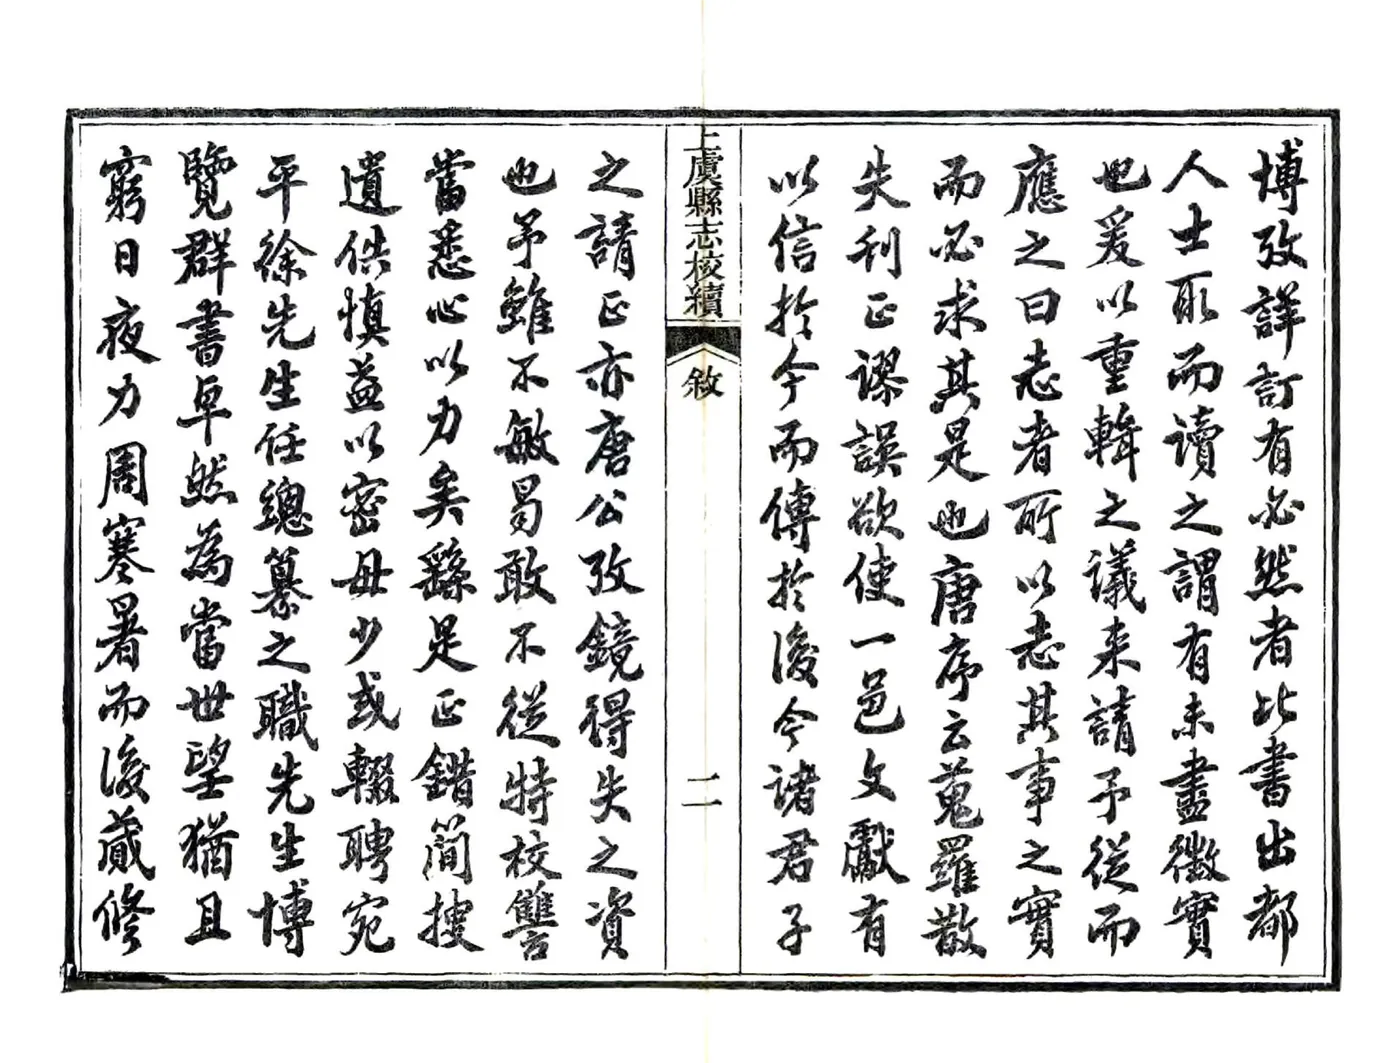 博攷詳訂有必然者比書出都
人士取而讀之謂有未盡徵實
也爰以重輯之議来請予従而
應之曰志者所以志其事之實
而必求其是也唐序云蒐羅散
失刊正謬誤欲使一邑文獻有
以信於今而傳於後今諸君子
上虞縣志校續
敘
二
之請正亦唐公攷鏡得失之資
也予雖不敏曷敢不從特校讐
當悉心以力矣繇是正錯簡搜
遺佚慎益以密毋少或輟聘宛
平徐先生任總纂之職先生博
覽群書卓然為當世望猶且
窮日夜力周寒暑而後蕆修